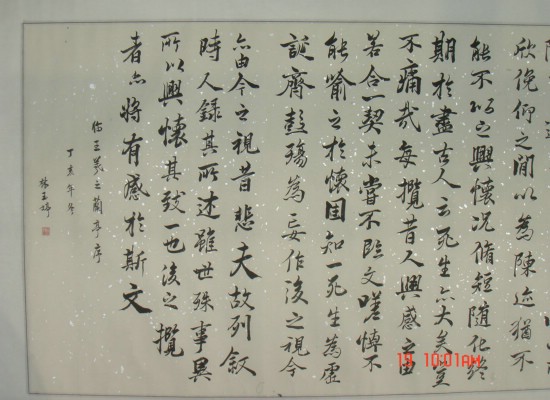 欣俛仰之間以為陳迹猶不
能不以之興懷況脩短隨化終
期於盡古人云死生亦大矣豈
不痛哉每攬昔人興感之由
若合一契未嘗不臨文嗟悼不
能喻之於懷固知一死生為虛
誕齊彭殤為妄作後之視今
亦由今之視昔悲夫故列敘
時人録其所述雖世殊事異
所以興懷其致一也後之攬
者亦將有感於斯文
临王羲之蘭亭序
丁亥年冬
林玉婷
19 10:01AM